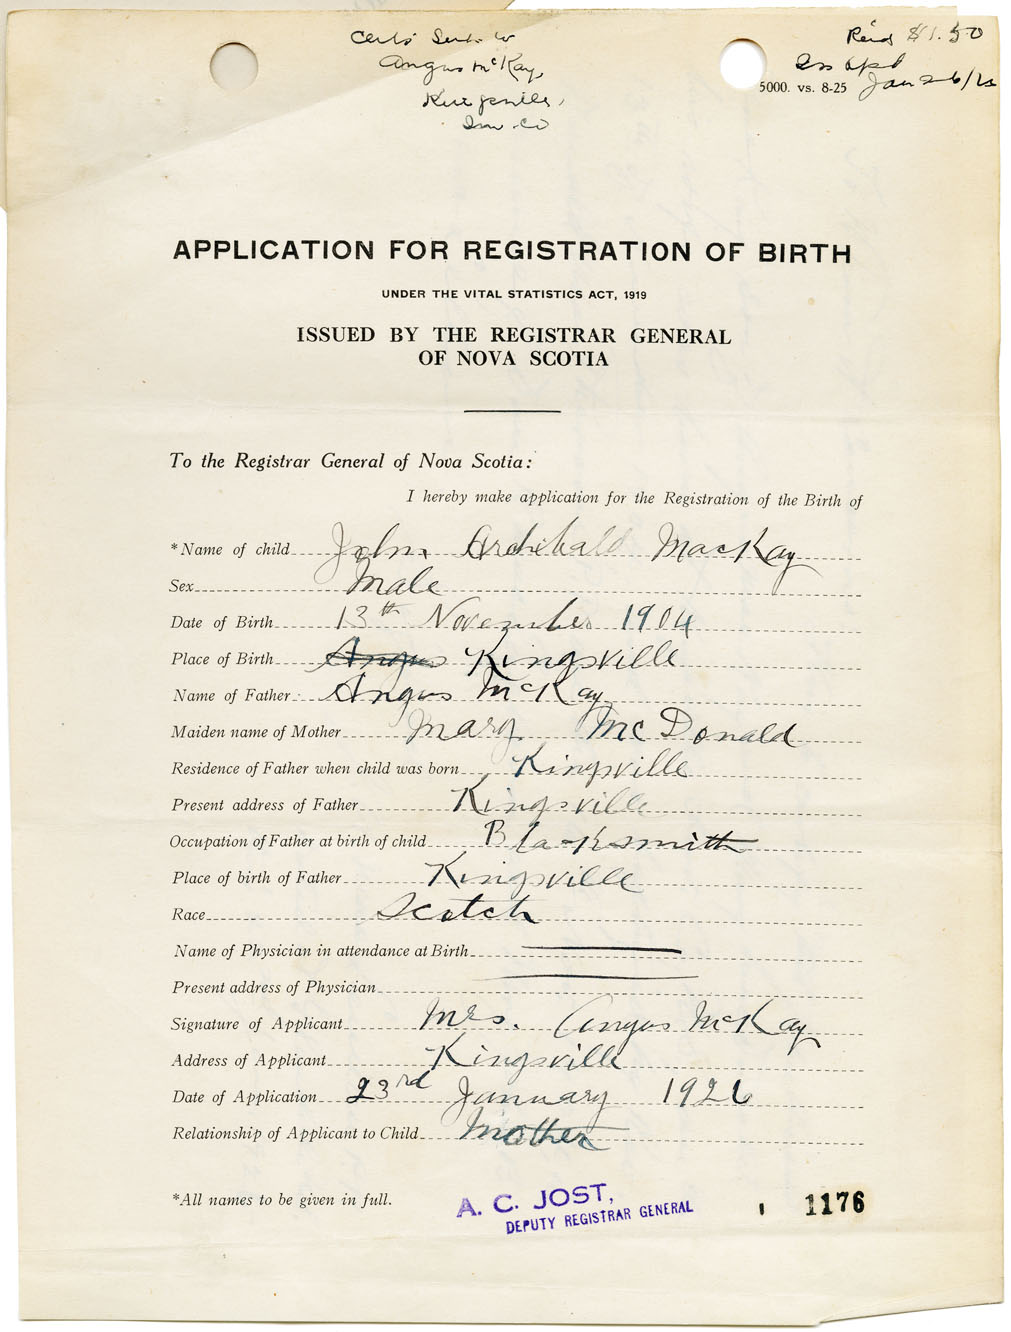 Certs Sent to
Angus McKay,
Kingsville,
Inv. Co
Rec'd $1.50
Jan 26/26
5000. vs. 8-25
APPLICATION FOR REGISTRATION OF BIRTH
UNDER THE VITAL STATISTICS ACT, 1919
ISSUED BY THE REGISTRAR GENERAL
OF NOVA SCOTIA
To the Registrar General of Nova Scotia:
I hereby make application for the Registration of the Birth of
*Name of child John Archibald MacKay
Sex Male
Date of Birth 13th November 1904
Place of Birth Angus Kingsville
Name of Father Angus McKay
Maiden name of Mother Mary McDonald
Residence of Father when child was born Kingsville
Present address of Father Kingsville
Occupation of Father at birth of child Blacksmith
Place of birth of Father Kingsville
Race Scotch
Name of Physician in attendance at Birth
Present address of Physician
Signature of Applicant Mrs. Angus McKay
Address of Applicant Kingsville
Date of Application 23rd January 1926
Relationship of Applicant to Child Mother
*All names to be given in full.
A. C. JOST,
DEPUTY REGISTRAR GENERAL
1176